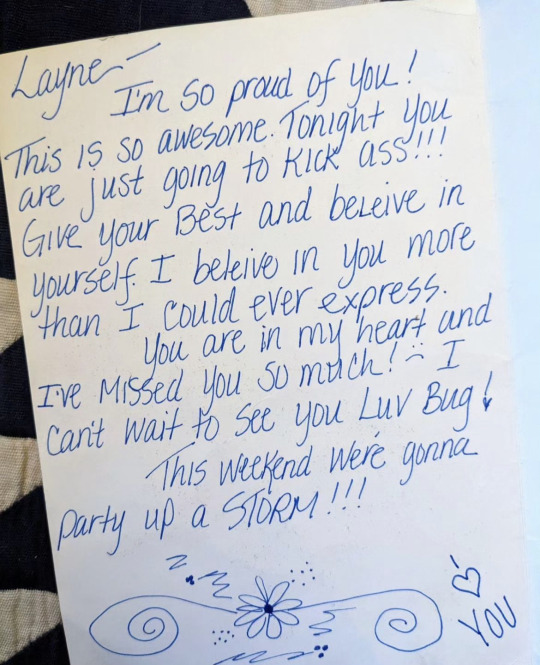 Layne -
I'm so proud of you!
This is so awesome. Tonight you
are just going to kick ass!!!
Give your Best and beleive in
yourself. I beleive in you more
than I could ever express.
You are in my heart and
I've missed you so much! I
can't wait to see you Luv Bug!
This weekend we're gonna
party up a STORM!!!
♡
YOU